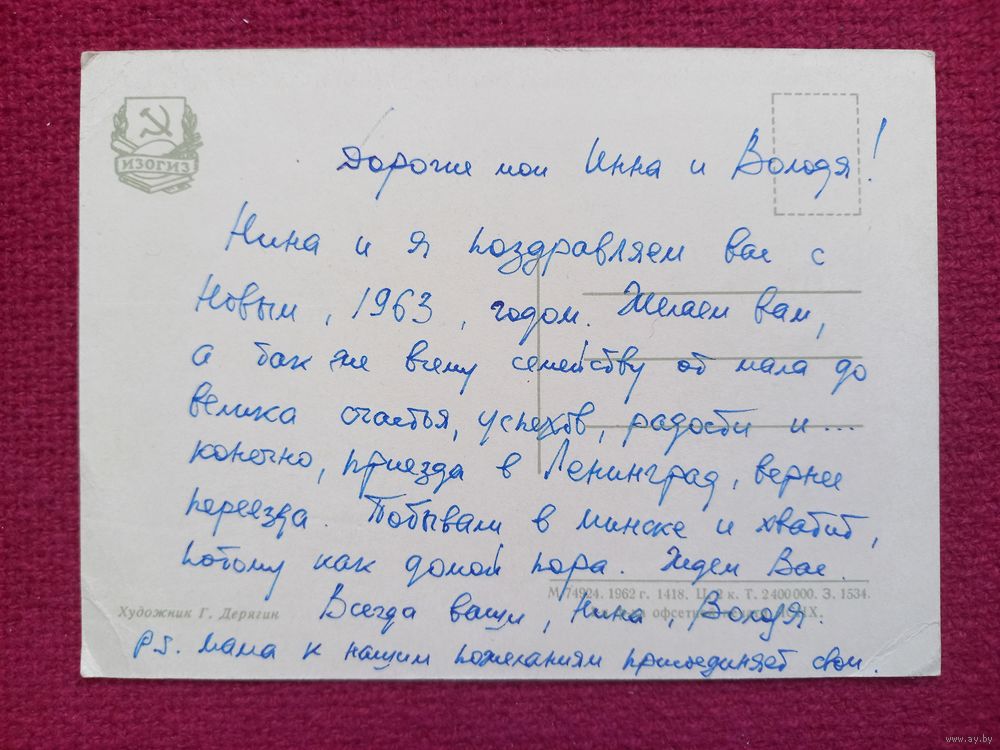 ИЗОГИЗ
Дорогие мои Инна и Володя!
Нина и я поздравляем вас с
Новым, 1963, годом. Желаем вам,
а так же всему семейству от мала до
велика счастья, успехов, радости и...
конечно, приезда в Ленинград, вернее
переезда. Побывали в Минске и хватит,
потому как домой пора. Ждем Вас.
М 74924. 1962 г. 1418. Ц. 2 к. Т. 2400000. З. 1534.
офсетной
Художник Г. Дерягин
Всегда ваши, Нина, Володя
P.S. Мама к нашим пожеланиям присоединяет свои.
www.ay.by